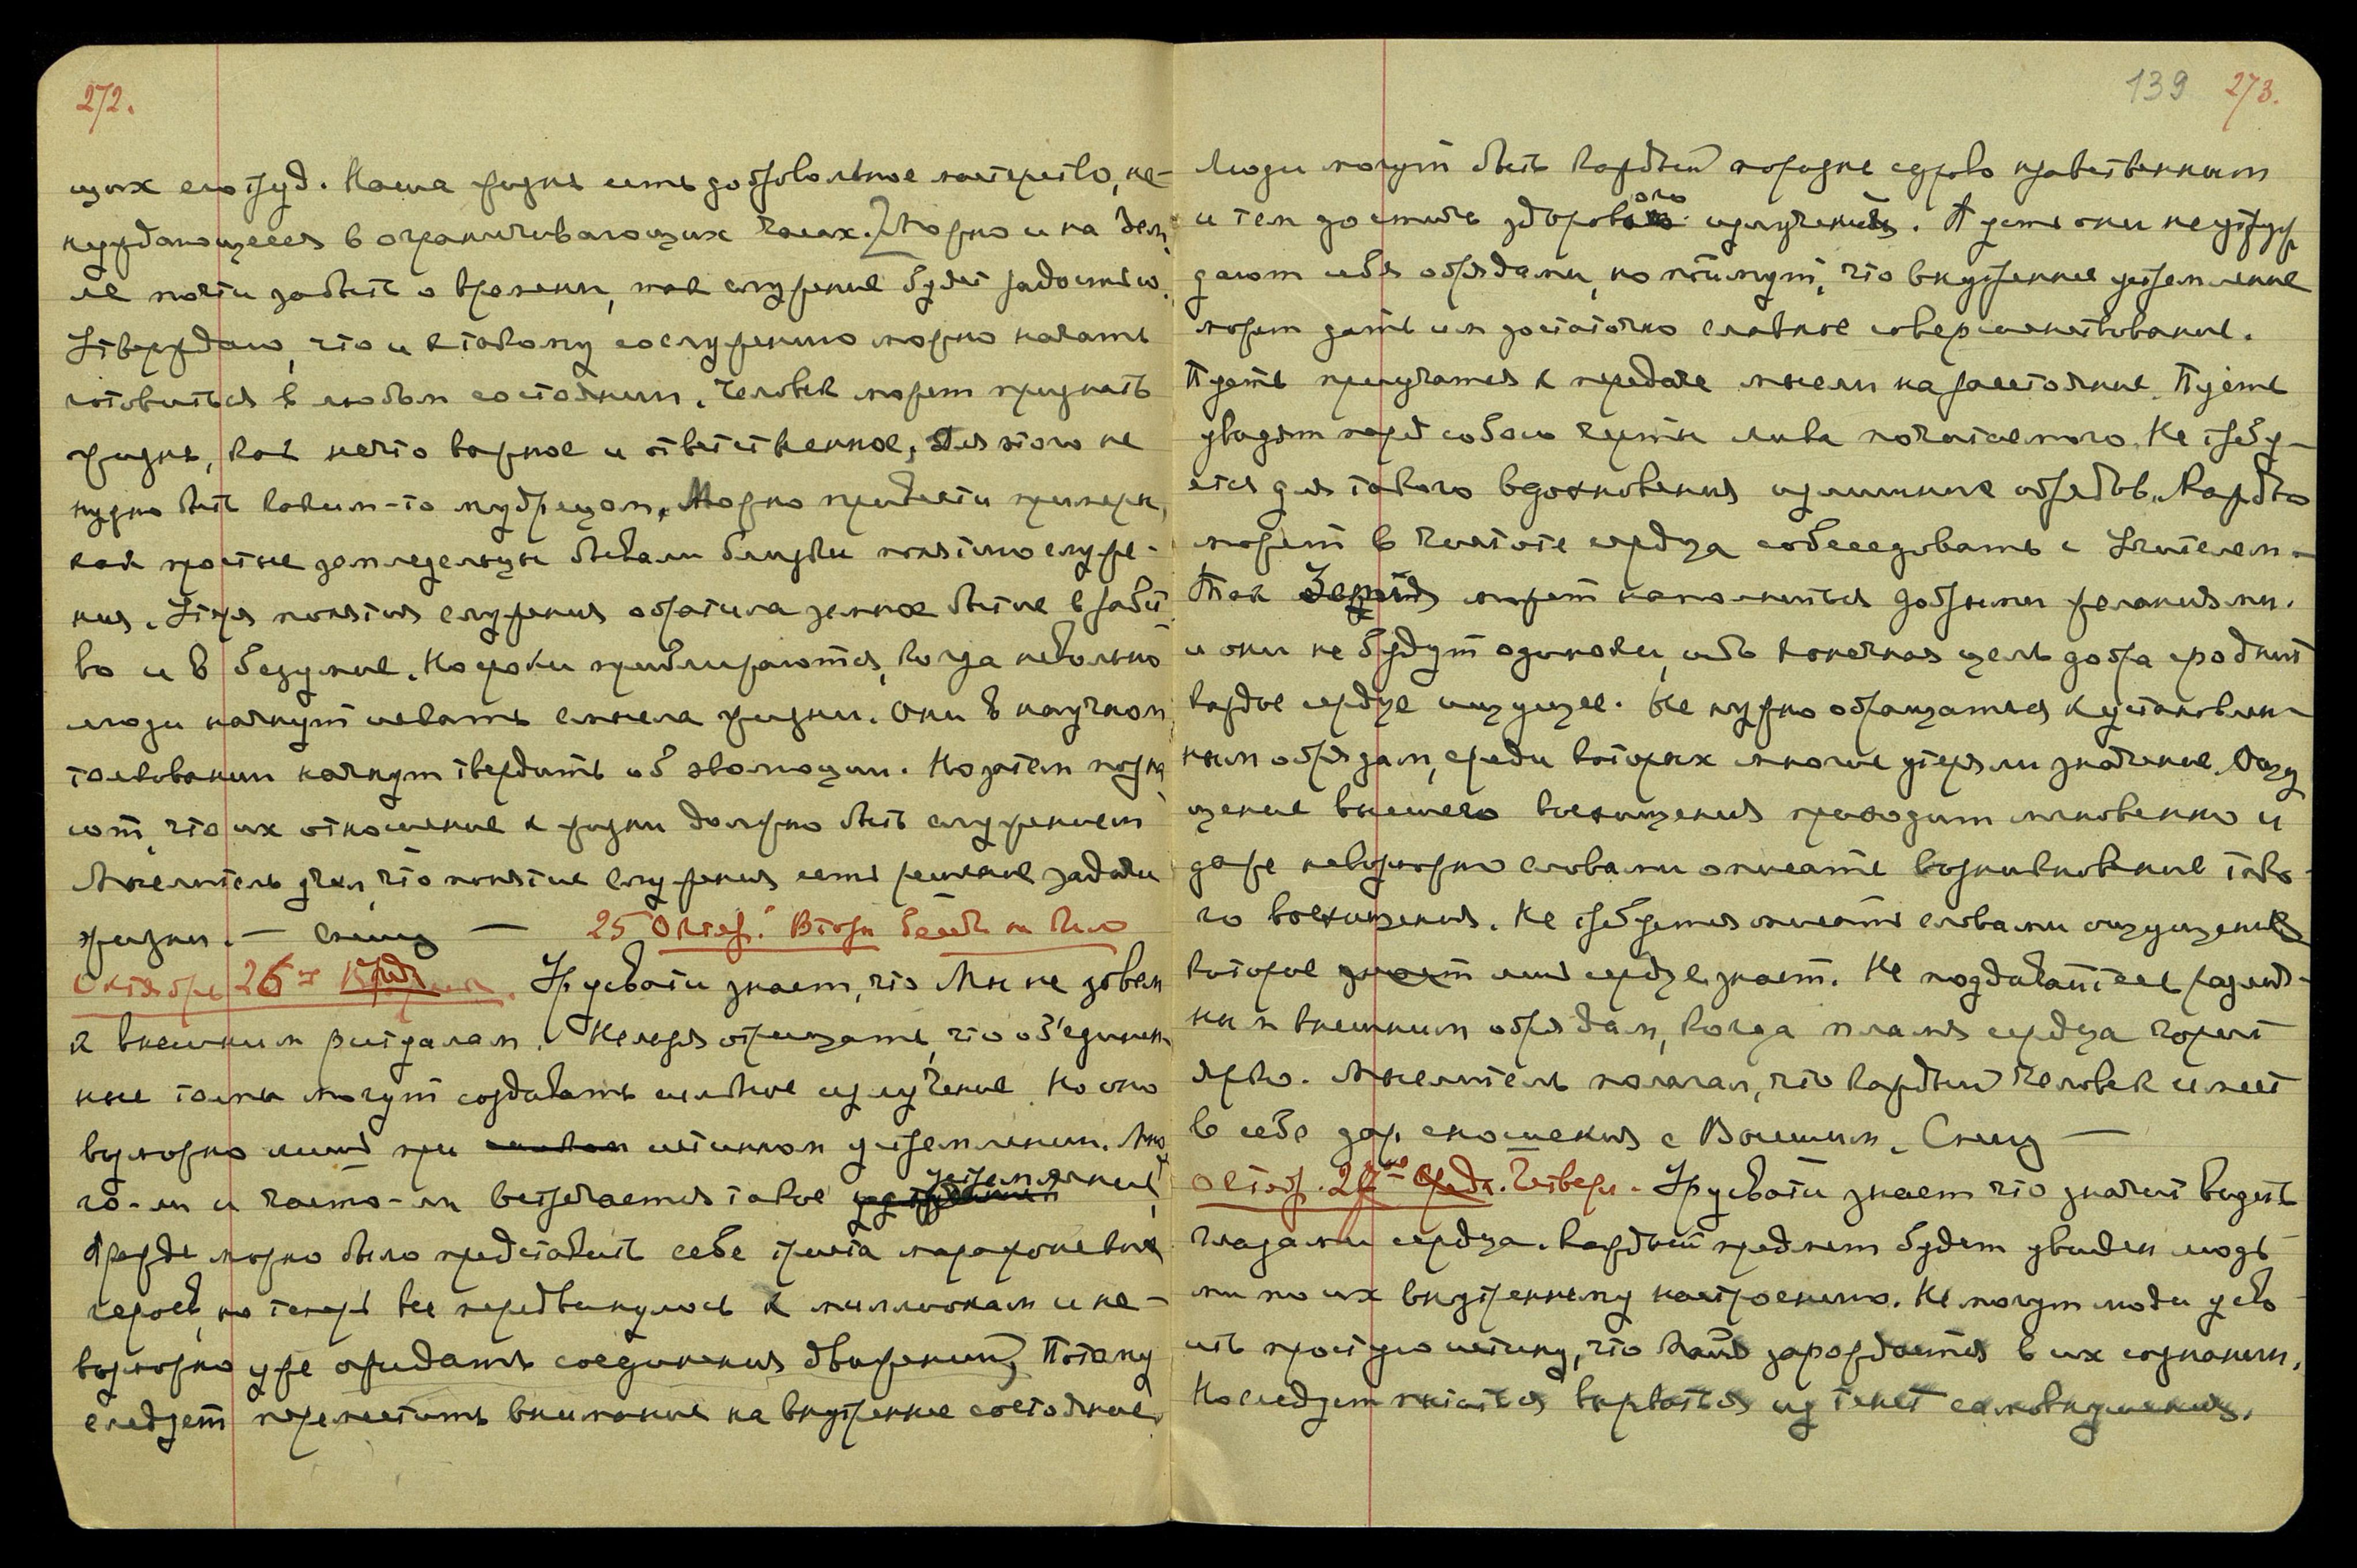 272.
щих его труд. Наша жизнь есть добровольное мастерство, не-
нуждающееся в ограничивающих часах. Можно и на Зем-
ле почти забыть о времени, тогда служение будет радостью.
Утверждаю, что и к такому сослужению можно начать
готовиться в любом состоянии. Человек может признать
жизнь, как нечто важное и ответственное, Для этого не
нужно быть каким-то мудрецом, Можно привести примеры,
как простые земледельцы бывали близки понятию служе-
ния. Утеря понятия служения обратила земное бытие в рабст-
во и в безумие. Но сроки приближаются, когда невольно
люди начнут искать смысла жизни. Они в научном
толковании начнут твердить об эволюции. Но затем пойм
ют, что их отношение к жизни должно быть служением
Мыслитель учил, что понятие служения есть решение задачи
жизни. — Спешу —
25 Октяб. Вторн
Октября 26-го Урусвати знает, что Мы не зовем
к внешним ритуалам. Нельзя отрицать, что об'единен-
ные толпы могут создавать сильное излучение Но оно
возможно лишь при истинном устремлении. Мно
го-ли и часто-ли встречается такое устремление,
Прежде можно было представить себе триста марафонских
героев, но теперь все передвинулось к миллионам и не-
возможно уже ожидать соединения движений, Потому
следует переместить внимание на внутреннее состояние.
139 273.
Люди могут быть каждый порядке здраво нравственным
и тем достичь здорового излучения. Пусть они не утруж
дают себя обрядами, но поймут, что внутреннее устремление
может дать им достаточно славное совершенствование.
Пусть приучатся к передаче мысли на расстояние. Пусть
увидят перед собою черты лика почитаемого. Не требу-
ется для такого вдохновения излишних обрядов. Каждый
может в чистоте сердца собеседовать с Учителем.
Так Земля может наполниться добрыми желаниями.
и они не будут одинокы, ибо конечная цель добра сроднит
каждое сердце ищущее. Не нужно обращаться к установлен-
ным обрядам, среди которых многие утеряли значение. Ощу
щение высшего восхищения приходит мгновенно и
даже невозможно словами описать возникновение тако-
го восхищения. Не требуется описать словами ощущение
которое лишь сердце знает. Не поддавайтесь различ-
ным внешним обрядам, когда пламя сердца горит
ярко. Мыслитель полагал, что каждый человек имеет
в себе дар сношения с Высшим. Спешу —
Октяб. Четверг. Урусвати знает что значит видеть
глазами сердца. Каждый предмет будет увиден людь-
ми по их внутреннему настроению. Не могут люди усво-
ить простую истину, что майя зарождается в их сознании.
Но следует пытаться вырваться из тенет самовнушения.